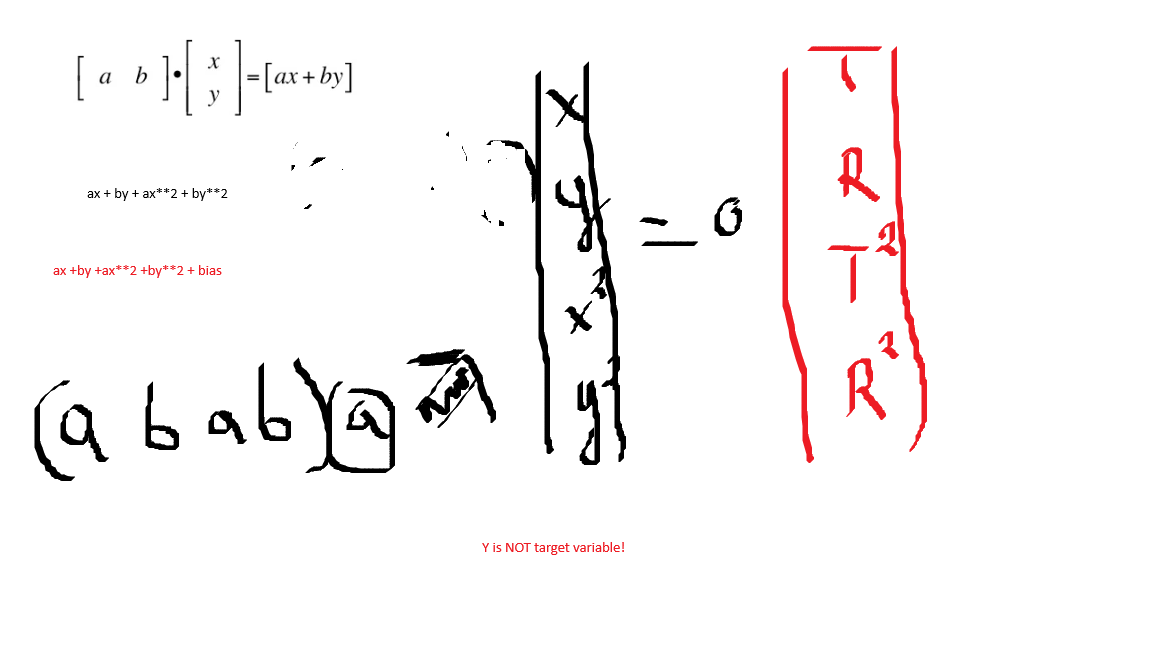 [ a b ] • [ x y ] = [ax + by]
ax + by + ax**2 + by**2
ax +by +ax**2 +by**2 + bias
(a b a b) a
x
y
x²
y²
= 0
T
R
T²
R²
Y is NOT target variable!